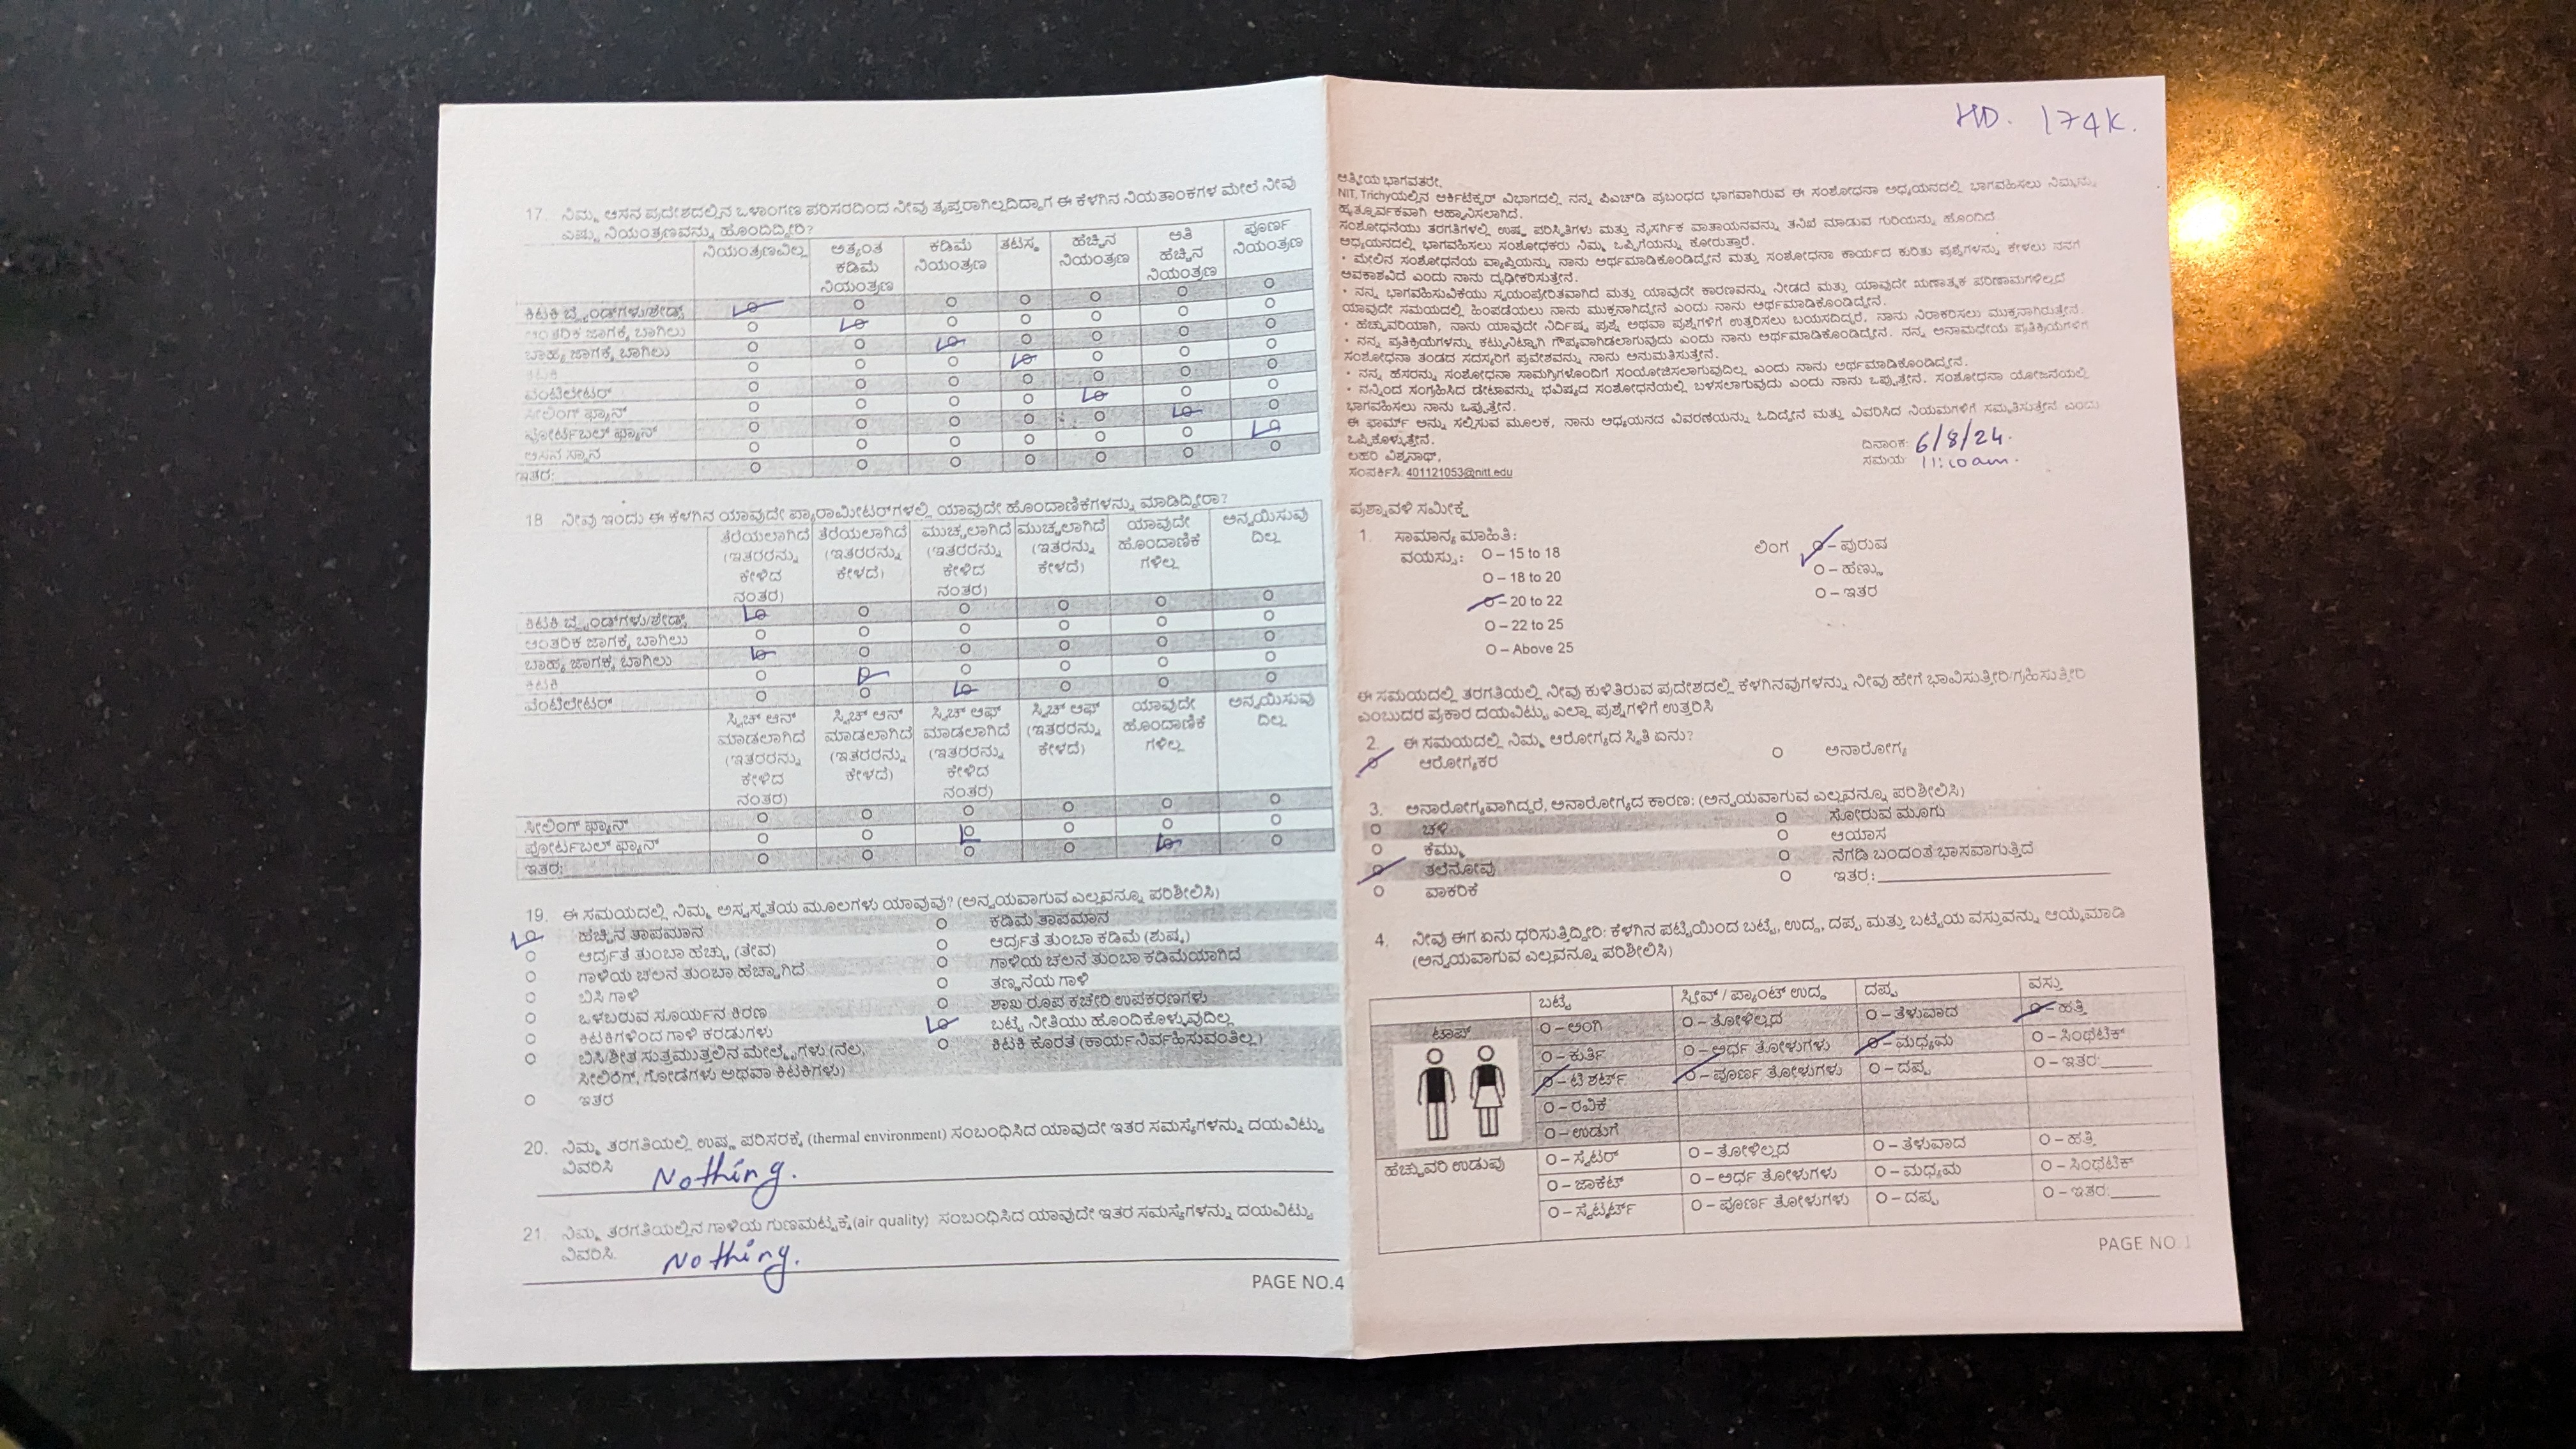 17. ನಿಮ್ಮ ಆಸನ ಪ್ರದೇಶದಲ್ಲಿನ ಒಳಾಂಗಣ ಪರಿಸರದಿಂದ ನೀವು ತೃಪ್ತರಾಗಿಲ್ಲದಿದ್ದಾಗ ಈ ಕೆಳಗಿನ ನಿಯತಾಂಕಗಳ ಮೇಲೆ ನೀವು
ಎಷ್ಟು ನಿಯಂತ್ರಣವನ್ನು ಹೊಂದಿದ್ದೀರಿ?
ನಿಯಂತ್ರಣವಿಲ್ಲ ಅತ್ಯಂತ ಕಡಿಮೆ ನಿಯಂತ್ರಣ ಕಡಿಮೆ ನಿಯಂತ್ರಣ ತಟಸ್ಥ ಹೆಚ್ಚಿನ ನಿಯಂತ್ರಣ ಅತಿ ಹೆಚ್ಚಿನ ನಿಯಂತ್ರಣ ಪೂರ್ಣ ನಿಯಂತ್ರಣ
ಕಿಟಕಿ ಬ್ಲೈಂಡ್‌ಗಳು/ಶೇಡ್ಸ್
ಆಂತರಿಕ ಜಾಗಕ್ಕೆ ಬಾಗಿಲು
ಬಾಹ್ಯ ಜಾಗಕ್ಕೆ ಬಾಗಿಲು
ಕಿಟಕಿ
ವೆಂಟಿಲೇಟರ್
ಸೀಲಿಂಗ್ ಫ್ಯಾನ್
ಪೋರ್ಟಬಲ್ ಫ್ಯಾನ್
ಆಸನ ಸ್ಥಾನ
ಇತರ:
18 ನೀವು ಇಂದು ಈ ಕೆಳಗಿನ ಯಾವುದೇ ಪ್ಯಾರಾಮೀಟರ್‌ಗಳಲ್ಲಿ ಯಾವುದೇ ಹೊಂದಾಣಿಕೆಗಳನ್ನು ಮಾಡಿದ್ದೀರಾ?
ತೆರೆಯಲಾಗಿದೆ (ಇತರರನ್ನು ಕೇಳಿದ ನಂತರ) ತೆರೆಯಲಾಗಿದೆ (ಇತರರನ್ನು ಕೇಳದೆ) ಮುಚ್ಚಲಾಗಿದೆ (ಇತರರನ್ನು ಕೇಳಿದ ನಂತರ) ಮುಚ್ಚಲಾಗಿದೆ (ಇತರರನ್ನು ಕೇಳದೆ) ಯಾವುದೇ ಹೊಂದಾಣಿಕೆ ಗಳಿಲ್ಲ ಅನ್ವಯಿಸುವು ದಿಲ್ಲ
ಕಿಟಕಿ ಬ್ಲೈಂಡ್‌ಗಳು/ಶೇಡ್ಸ್
ಆಂತರಿಕ ಜಾಗಕ್ಕೆ ಬಾಗಿಲು
ಬಾಹ್ಯ ಜಾಗಕ್ಕೆ ಬಾಗಿಲು
ಕಿಟಕಿ
ವೆಂಟಿಲೇಟರ್
ಸ್ವಿಚ್ ಆನ್ ಮಾಡಲಾಗಿದೆ (ಇತರರನ್ನು ಕೇಳಿದ ನಂತರ) ಸ್ವಿಚ್ ಆನ್ ಮಾಡಲಾಗಿದೆ (ಇತರರನ್ನು ಕೇಳದೆ) ಸ್ವಿಚ್ ಆಫ್ ಮಾಡಲಾಗಿದೆ (ಇತರರನ್ನು ಕೇಳಿದ ನಂತರ) ಸ್ವಿಚ್ ಆಫ್ (ಇತರರನ್ನು ಕೇಳದೆ) ಯಾವುದೇ ಹೊಂದಾಣಿಕೆ ಗಳಿಲ್ಲ ಅನ್ವಯಿಸುವು ದಿಲ್ಲ
ಸೀಲಿಂಗ್ ಫ್ಯಾನ್
ಪೋರ್ಟಬಲ್ ಫ್ಯಾನ್
ಇತರ:
19. ಈ ಸಮಯದಲ್ಲಿ ನಿಮ್ಮ ಅಸ್ವಸ್ಥತೆಯ ಮೂಲಗಳು ಯಾವುವು? (ಅನ್ವಯವಾಗುವ ಎಲ್ಲವನ್ನೂ ಪರಿಶೀಲಿಸಿ)
ಹೆಚ್ಚಿನ ತಾಪಮಾನ ಕಡಿಮೆ ತಾಪಮಾನ
ಆರ್ದ್ರತೆ ತುಂಬಾ ಹೆಚ್ಚು (ತೇವ) ಆರ್ದ್ರತೆ ತುಂಬಾ ಕಡಿಮೆ (ಶುಷ್ಕ)
ಗಾಳಿಯ ಚಲನೆ ತುಂಬಾ ಹೆಚ್ಚಾಗಿದೆ ಗಾಳಿಯ ಚಲನೆ ತುಂಬಾ ಕಡಿಮೆಯಾಗಿದೆ
ಬಿಸಿ ಗಾಳಿ ತಣ್ಣನೆಯ ಗಾಳಿ
ಒಳಬರುವ ಸೂರ್ಯನ ಕಿರಣ ಶಾಖ ರೂಪ ಕಚೇರಿ ಉಪಕರಣಗಳು
ಕಿಟಕಿಗಳಿಂದ ಗಾಳಿ ಕರಡುಗಳು ಬಟ್ಟೆ ನೀತಿಯು ಹೊಂದಿಕೊಳ್ಳುವುದಿಲ್ಲ
ಬಿಸಿ/ಶೀತ ಸುತ್ತಮುತ್ತಲಿನ ಮೇಲ್ಮೈಗಳು (ನೆಲ, ಕಿಟಕಿ ಕೊರತೆ (ಕಾರ್ಯನಿರ್ವಹಿಸುವಂತಿಲ್ಲ)
ಸೀಲಿಂಗ್, ಗೋಡೆಗಳು ಅಥವಾ ಕಿಟಕಿಗಳು)
ಇತರ
20. ನಿಮ್ಮ ತರಗತಿಯಲ್ಲಿ ಉಷ್ಣ ಪರಿಸರಕ್ಕೆ (thermal environment) ಸಂಬಂಧಿಸಿದ ಯಾವುದೇ ಇತರ ಸಮಸ್ಯೆಗಳನ್ನು ದಯವಿಟ್ಟು
ವಿವರಿಸಿ Nothing.
21. ನಿಮ್ಮ ತರಗತಿಯಲ್ಲಿನ ಗಾಳಿಯ ಗುಣಮಟ್ಟಕ್ಕೆ (air quality) ಸಂಬಂಧಿಸಿದ ಯಾವುದೇ ಇತರ ಸಮಸ್ಯೆಗಳನ್ನು ದಯವಿಟ್ಟು
ವಿವರಿಸಿ. Nothing.
PAGE NO.4
HD. 174K.
ಆತ್ಮೀಯ ಭಾಗವತರೇ,
NIT, Trichyಯಲ್ಲಿನ ಆರ್ಕಿಟೆಕ್ಚರ್ ವಿಭಾಗದಲ್ಲಿ ನನ್ನ ಪಿಎಚ್‌ಡಿ ಪ್ರಬಂಧದ ಭಾಗವಾಗಿರುವ ಈ ಸಂಶೋಧನಾ ಅಧ್ಯಯನದಲ್ಲಿ ಭಾಗವಹಿಸಲು ನಿಮ್ಮನ್ನು
ಹೃತ್ಪೂರ್ವಕವಾಗಿ ಆಹ್ವಾನಿಸಲಾಗಿದೆ.
ಸಂಶೋಧನೆಯು ತರಗತಿಗಳಲ್ಲಿ ಉಷ್ಣ ಪರಿಸ್ಥಿತಿಗಳು ಮತ್ತು ನೈಸರ್ಗಿಕ ವಾತಾಯನವನ್ನು ತನಿಖೆ ಮಾಡುವ ಗುರಿಯನ್ನು ಹೊಂದಿದೆ
ಅಧ್ಯಯನದಲ್ಲಿ ಭಾಗವಹಿಸಲು ಸಂಶೋಧಕರು ನಿಮ್ಮ ಒಪ್ಪಿಗೆಯನ್ನು ಕೋರುತ್ತಾರೆ.
• ಮೇಲಿನ ಸಂಶೋಧನೆಯ ವ್ಯಾಪ್ತಿಯನ್ನು ನಾನು ಅರ್ಥಮಾಡಿಕೊಂಡಿದ್ದೇನೆ ಮತ್ತು ಸಂಶೋಧನಾ ಕಾರ್ಯದ ಕುರಿತು ಪ್ರಶ್ನೆಗಳನ್ನು ಕೇಳಲು ನನಗೆ
ಅವಕಾಶವಿದೆ ಎಂದು ನಾನು ದೃಢೀಕರಿಸುತ್ತೇನೆ.
• ನನ್ನ ಭಾಗವಹಿಸುವಿಕೆಯು ಸ್ವಯಂಪ್ರೇರಿತವಾಗಿದೆ ಮತ್ತು ಯಾವುದೇ ಕಾರಣವನ್ನು ನೀಡದೆ ಮತ್ತು ಯಾವುದೇ ಋಣಾತ್ಮಕ ಪರಿಣಾಮಗಳಿಲ್ಲದೆ
ಯಾವುದೇ ಸಮಯದಲ್ಲಿ ಹಿಂಪಡೆಯಲು ನಾನು ಮುಕ್ತನಾಗಿದ್ದೇನೆ ಎಂದು ನಾನು ಅರ್ಥಮಾಡಿಕೊಂಡಿದ್ದೇನೆ.
• ಹೆಚ್ಚುವರಿಯಾಗಿ, ನಾನು ಯಾವುದೇ ನಿರ್ದಿಷ್ಟ ಪ್ರಶ್ನೆ ಅಥವಾ ಪ್ರಶ್ನೆಗಳಿಗೆ ಉತ್ತರಿಸಲು ಬಯಸದಿದ್ದರೆ, ನಾನು ನಿರಾಕರಿಸಲು ಮುಕ್ತನಾಗಿರುತ್ತೇನೆ.
• ನನ್ನ ಪ್ರತಿಕ್ರಿಯೆಗಳನ್ನು ಕಟ್ಟುನಿಟ್ಟಾಗಿ ಗೌಪ್ಯವಾಗಿಡಲಾಗುವುದು ಎಂದು ನಾನು ಅರ್ಥಮಾಡಿಕೊಂಡಿದ್ದೇನೆ. ನನ್ನ ಅನಾಮಧೇಯ ಪ್ರತಿಕ್ರಿಯೆಗಳಿಗೆ
ಸಂಶೋಧನಾ ತಂಡದ ಸದಸ್ಯರಿಗೆ ಪ್ರವೇಶವನ್ನು ನಾನು ಅನುಮತಿಸುತ್ತೇನೆ.
• ನನ್ನ ಹೆಸರನ್ನು ಸಂಶೋಧನಾ ಸಾಮಗ್ರಿಗಳೊಂದಿಗೆ ಸಂಯೋಜಿಸಲಾಗುವುದಿಲ್ಲ ಎಂದು ನಾನು ಅರ್ಥಮಾಡಿಕೊಂಡಿದ್ದೇನೆ.
• ನನ್ನಿಂದ ಸಂಗ್ರಹಿಸಿದ ಡೇಟಾವನ್ನು ಭವಿಷ್ಯದ ಸಂಶೋಧನೆಯಲ್ಲಿ ಬಳಸಲಾಗುವುದು ಎಂದು ನಾನು ಒಪ್ಪುತ್ತೇನೆ. ಸಂಶೋಧನಾ ಯೋಜನೆಯಲ್ಲಿ
ಭಾಗವಹಿಸಲು ನಾನು ಒಪ್ಪುತ್ತೇನೆ.
ಈ ಫಾರ್ಮ್ ಅನ್ನು ಸಲ್ಲಿಸುವ ಮೂಲಕ, ನಾನು ಅಧ್ಯಯನದ ವಿವರಣೆಯನ್ನು ಓದಿದ್ದೇನೆ ಮತ್ತು ವಿವರಿಸಿದ ನಿಯಮಗಳಿಗೆ ಸಮ್ಮತಿಸುತ್ತೇನೆ ಎಂದು
ಒಪ್ಪಿಕೊಳ್ಳುತ್ತೇನೆ.
ಲಹರಿ ವಿಶ್ವನಾಥ್,
ಸಂಪರ್ಕಿಸಿ: 401121053@nitt.edu
ದಿನಾಂಕ: 6/8/24.
ಸಮಯ: 11:10am.
ಪ್ರಶ್ನಾವಳಿ ಸಮೀಕ್ಷೆ
1. ಸಾಮಾನ್ಯ ಮಾಹಿತಿ:
ವಯಸ್ಸು: O – 15 to 18 ಲಿಂಗ O – ಪುರುಷ
O – 18 to 20 O – ಹೆಣ್ಣು
O – 20 to 22 O – ಇತರ
O – 22 to 25
O – Above 25
ಈ ಸಮಯದಲ್ಲಿ ತರಗತಿಯಲ್ಲಿ ನೀವು ಕುಳಿತಿರುವ ಪ್ರದೇಶದಲ್ಲಿ ಕೆಳಗಿನವುಗಳನ್ನು ನೀವು ಹೇಗೆ ಭಾವಿಸುತ್ತೀರಿ/ಗ್ರಹಿಸುತ್ತೀರಿ
ಎಂಬುದರ ಪ್ರಕಾರ ದಯವಿಟ್ಟು ಎಲ್ಲಾ ಪ್ರಶ್ನೆಗಳಿಗೆ ಉತ್ತರಿಸಿ
2. ಈ ಸಮಯದಲ್ಲಿ ನಿಮ್ಮ ಆರೋಗ್ಯದ ಸ್ಥಿತಿ ಏನು?
ಆರೋಗ್ಯಕರ O ಅನಾರೋಗ್ಯ
3. ಅನಾರೋಗ್ಯವಾಗಿದ್ದರೆ, ಅನಾರೋಗ್ಯದ ಕಾರಣ: (ಅನ್ವಯವಾಗುವ ಎಲ್ಲವನ್ನೂ ಪರಿಶೀಲಿಸಿ)
O ಚಳಿ O ಸೋರುವ ಮೂಗು
O ಕೆಮ್ಮು O ಆಯಾಸ
O ತಲೆನೋವು O ನೆಗಡಿ ಬಂದಂತೆ ಭಾಸವಾಗುತ್ತಿದೆ
O ವಾಕರಿಕೆ O ಇತರ:
4. ನೀವು ಈಗ ಏನು ಧರಿಸುತ್ತಿದ್ದೀರಿ: ಕೆಳಗಿನ ಪಟ್ಟಿಯಿಂದ ಬಟ್ಟೆ, ಉದ್ದ, ದಪ್ಪ ಮತ್ತು ಬಟ್ಟೆಯ ವಸ್ತುವನ್ನು ಆಯ್ಕೆಮಾಡಿ
(ಅನ್ವಯವಾಗುವ ಎಲ್ಲವನ್ನೂ ಪರಿಶೀಲಿಸಿ)
ಬಟ್ಟೆ ಸ್ಲೀವ್ / ಪ್ಯಾಂಟ್ ಉದ್ದ ದಪ್ಪ ವಸ್ತು
ಟಾಪ್ O – ಅಂಗಿ O – ತೋಳಿಲ್ಲದ O – ತೆಳುವಾದ O – ಹತ್ತಿ
O – ಕುರ್ತಿ O – ಅರ್ಧ ತೋಳುಗಳು O – ಮಧ್ಯಮ O – ಸಿಂಥೆಟಿಕ್
O – ಟಿ ಶರ್ಟ್ O – ಪೂರ್ಣ ತೋಳುಗಳು O – ದಪ್ಪ O – ಇತರ:
O – ರವಿಕೆ
O – ಉಡುಗೆ
ಹೆಚ್ಚುವರಿ ಉಡುಪು O – ಸ್ವೆಟರ್ O – ತೋಳಿಲ್ಲದ O – ತೆಳುವಾದ O – ಹತ್ತಿ
O – ಜಾಕೆಟ್ O – ಅರ್ಧ ತೋಳುಗಳು O – ಮಧ್ಯಮ O – ಸಿಂಥೆಟಿಕ್
O – ಸ್ವೆಟ್ಶರ್ಟ್ O – ಪೂರ್ಣ ತೋಳುಗಳು O – ದಪ್ಪ O – ಇತರ:
PAGE NO.1